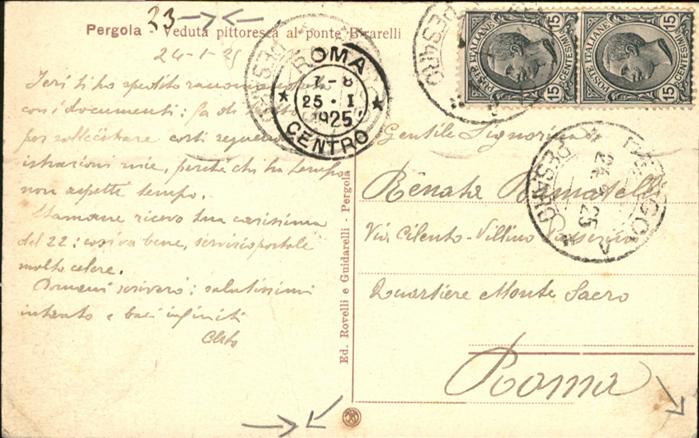 23
Pergola - Veduta pittoresca al ponte Birarelli
24-1-25
Ieri ti ho spedito
con i documenti:
per sollecitare
mie, perché chi ha tempo
non aspetti tempo.
Stamane ricevo tua carissima
del 22: così va bene, servizio postale
molto celere.
Domani scriverò: salutissimi
intanto e baci infiniti
ROMA
7-8
25 · I
1925
CENTRO
POSTE ITALIANE
CENTES. 15
POSTE ITALIANE
CENTES. 15
PERGOLA
24 25
PESARO
Gentile Signorina
Renata
Via Cilento - Villino
Quartiere Monte Sacro
Roma
Ed. Rovelli e Guidarelli - Pergola